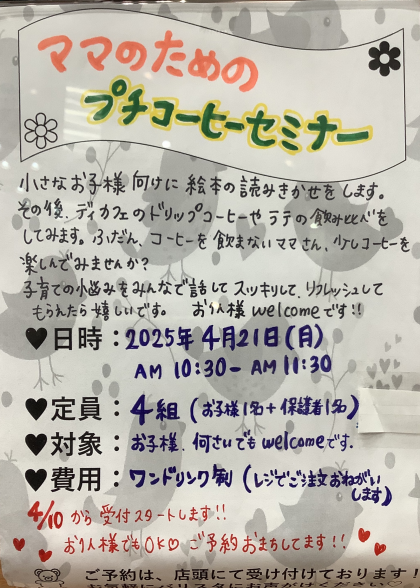 ママのための
プチコーヒーセミナー
小さなお子様向けに絵本の読みきかせをします。
その後、ディカフェのドリップコーヒーやラテの飲み比べを
してみます。ふだん、コーヒーを飲まないママさん、少しコーヒーを
楽しんでみませんか?
子育ての小悩みをみんなで話してスッキリして、リフレッシュして
もらえたら嬉しいです。 お1人様welcomeです!!
♥日時:2025年4月21日(月)
AM 10:30- AM 11:30
♥定員:4組(お子様1名+保護者1名)
♥対象:お子様、何さいでもwelcomeです。
♥費用:ワンドリンク制(レジでご注文おねがい
します)
4/10から受付スタートします!!
お1人様でもOK♡ご予約おまちしてます!!
ご予約は、店頭にて受け付けております!